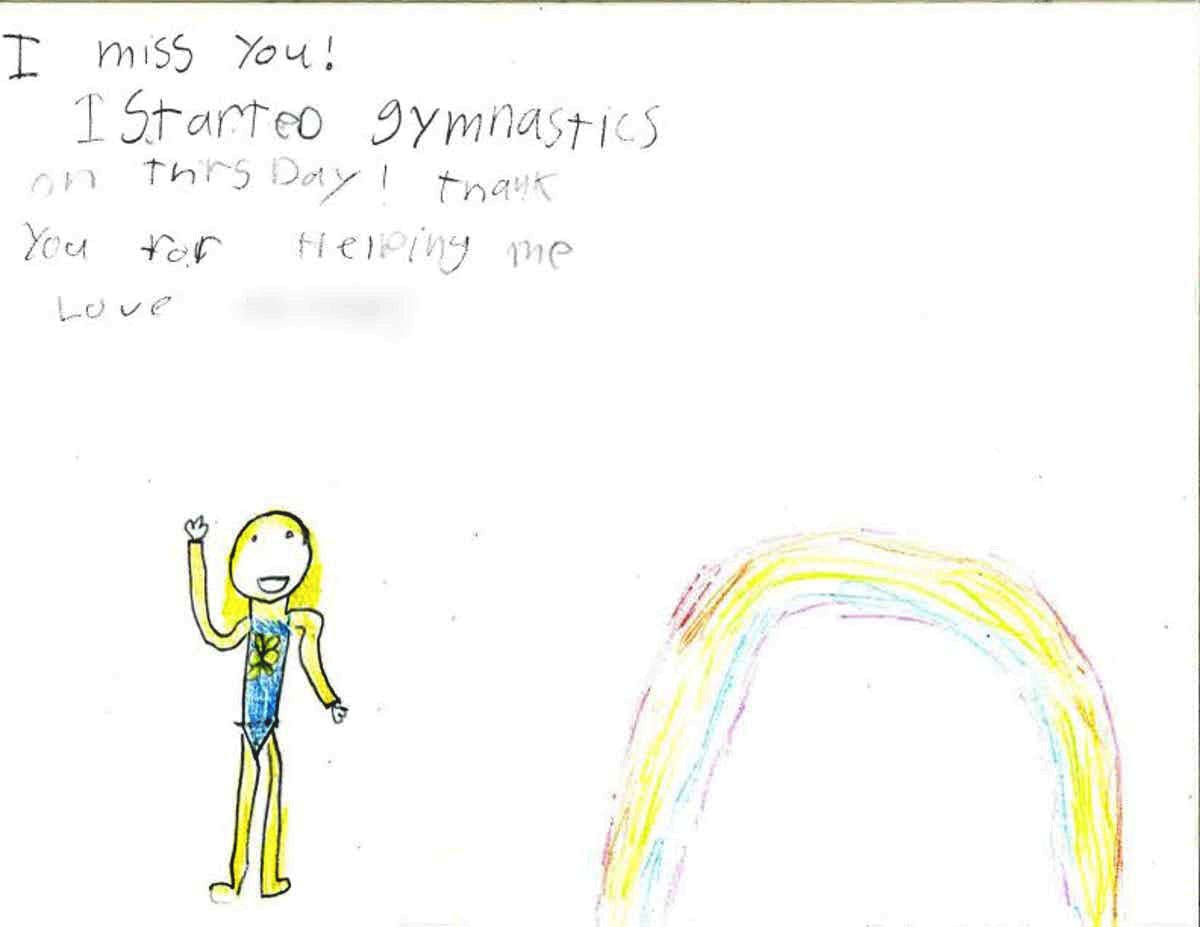 I miss you!
I Started gymnastics
on this Day! thank
You for Helping me
Love